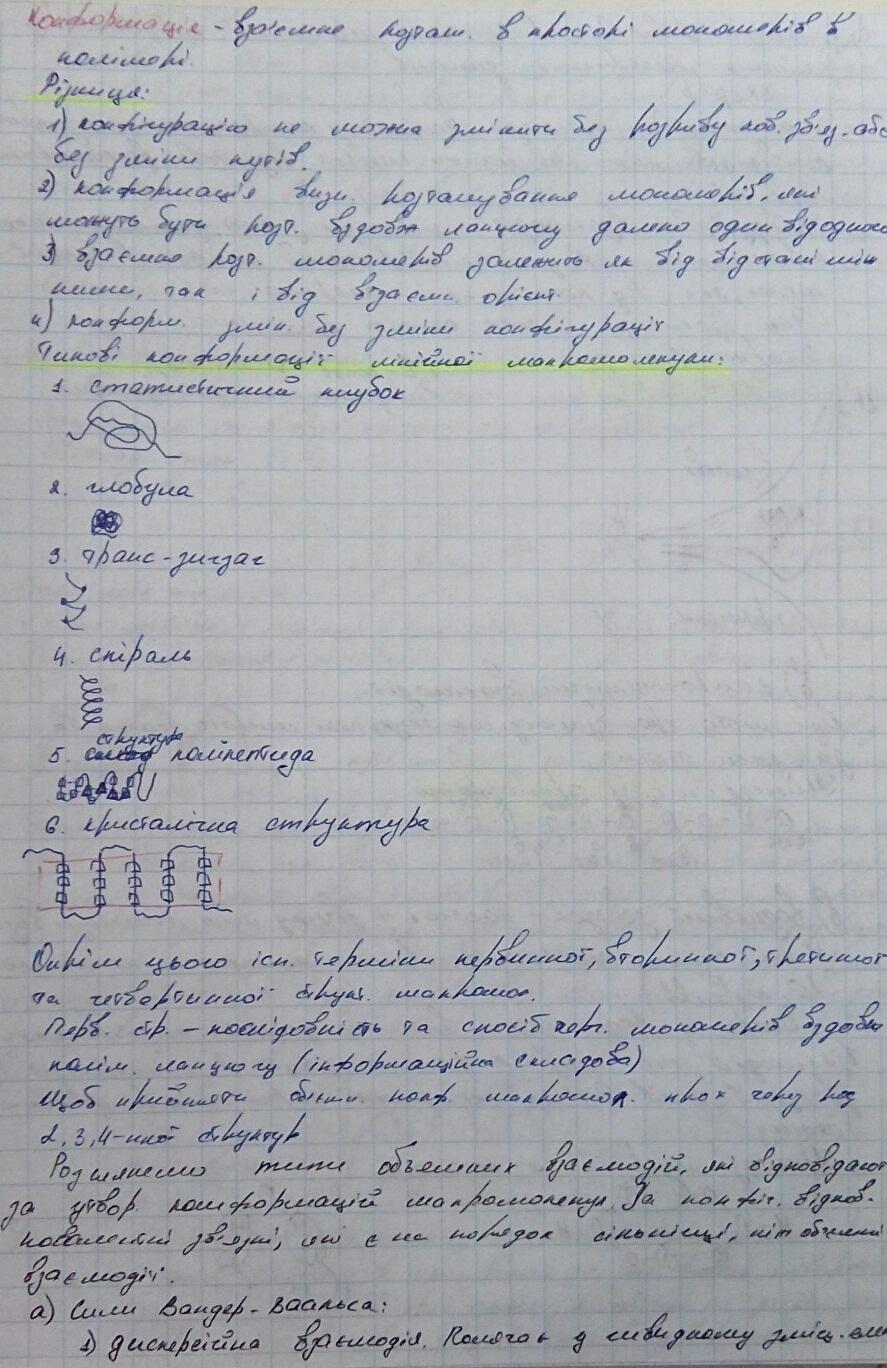 Конформація - взаємне розташ. в просторі мономерів в
полімері.
Різниця:
1) конфігурацію не можна змінити без розриву ков. зв'яз. або
без зміни кутів.
2) конформація визн. розташування мономерів, які
можуть бути розт. вздовж ланцюгу далеко один від одного
3) взаємне розт. мономерів залежить як від відстані між
ними, так і від взаємн. орієнт.
4) конформ. змін. без зміни конфігурації
Типові конформації лінійної макромолекули:
1. статистичний клубок
2. глобула
3. транс-зигзаг
4. спіраль
структура
5. поліпептида
6. кристалічна структура
Окрім цього існ. терміни первинної, вторинної, третиної
та четвертинної структ. макромол.
Перв. стр. - послідовність та спосіб черг. мономерів вздовж
полім. ланцюгу (інформаційна складова)
Щоб прийняти конф. макромол. прох через ряд
2,3,4-ної структур
Розглянемо типи объемних взаємодій, які відповідають
за утвор. конформацій макромолекул. За конфіг. віднов.
ковалентні зв'язкі, які є на порядок сильніші, ніж объемні
взаємодії.
а) Сили Вандер-Ваальса:
1) дисперсійна взаємодія. Полягає у швидкому зміщ. елек